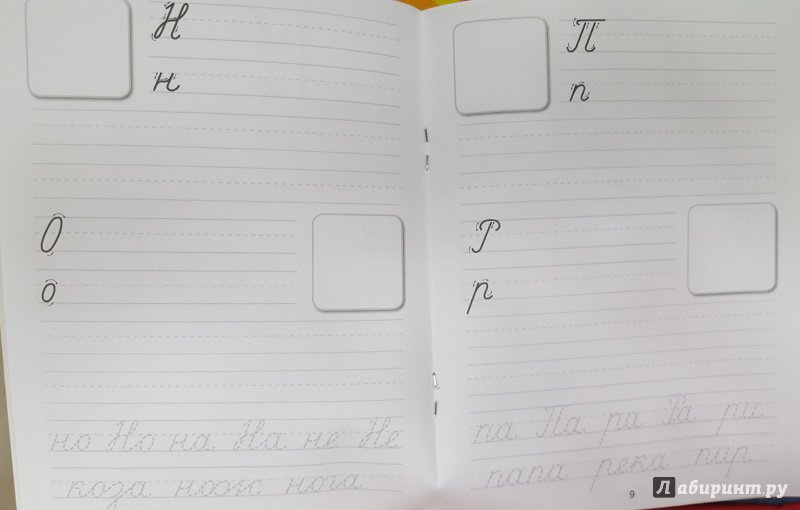 Н
н
О
о
но Но на На не Не
коза нож нога
П
п
Р
р
па Па ра Ра ри
папа река пир
9
Лабиринт.ру